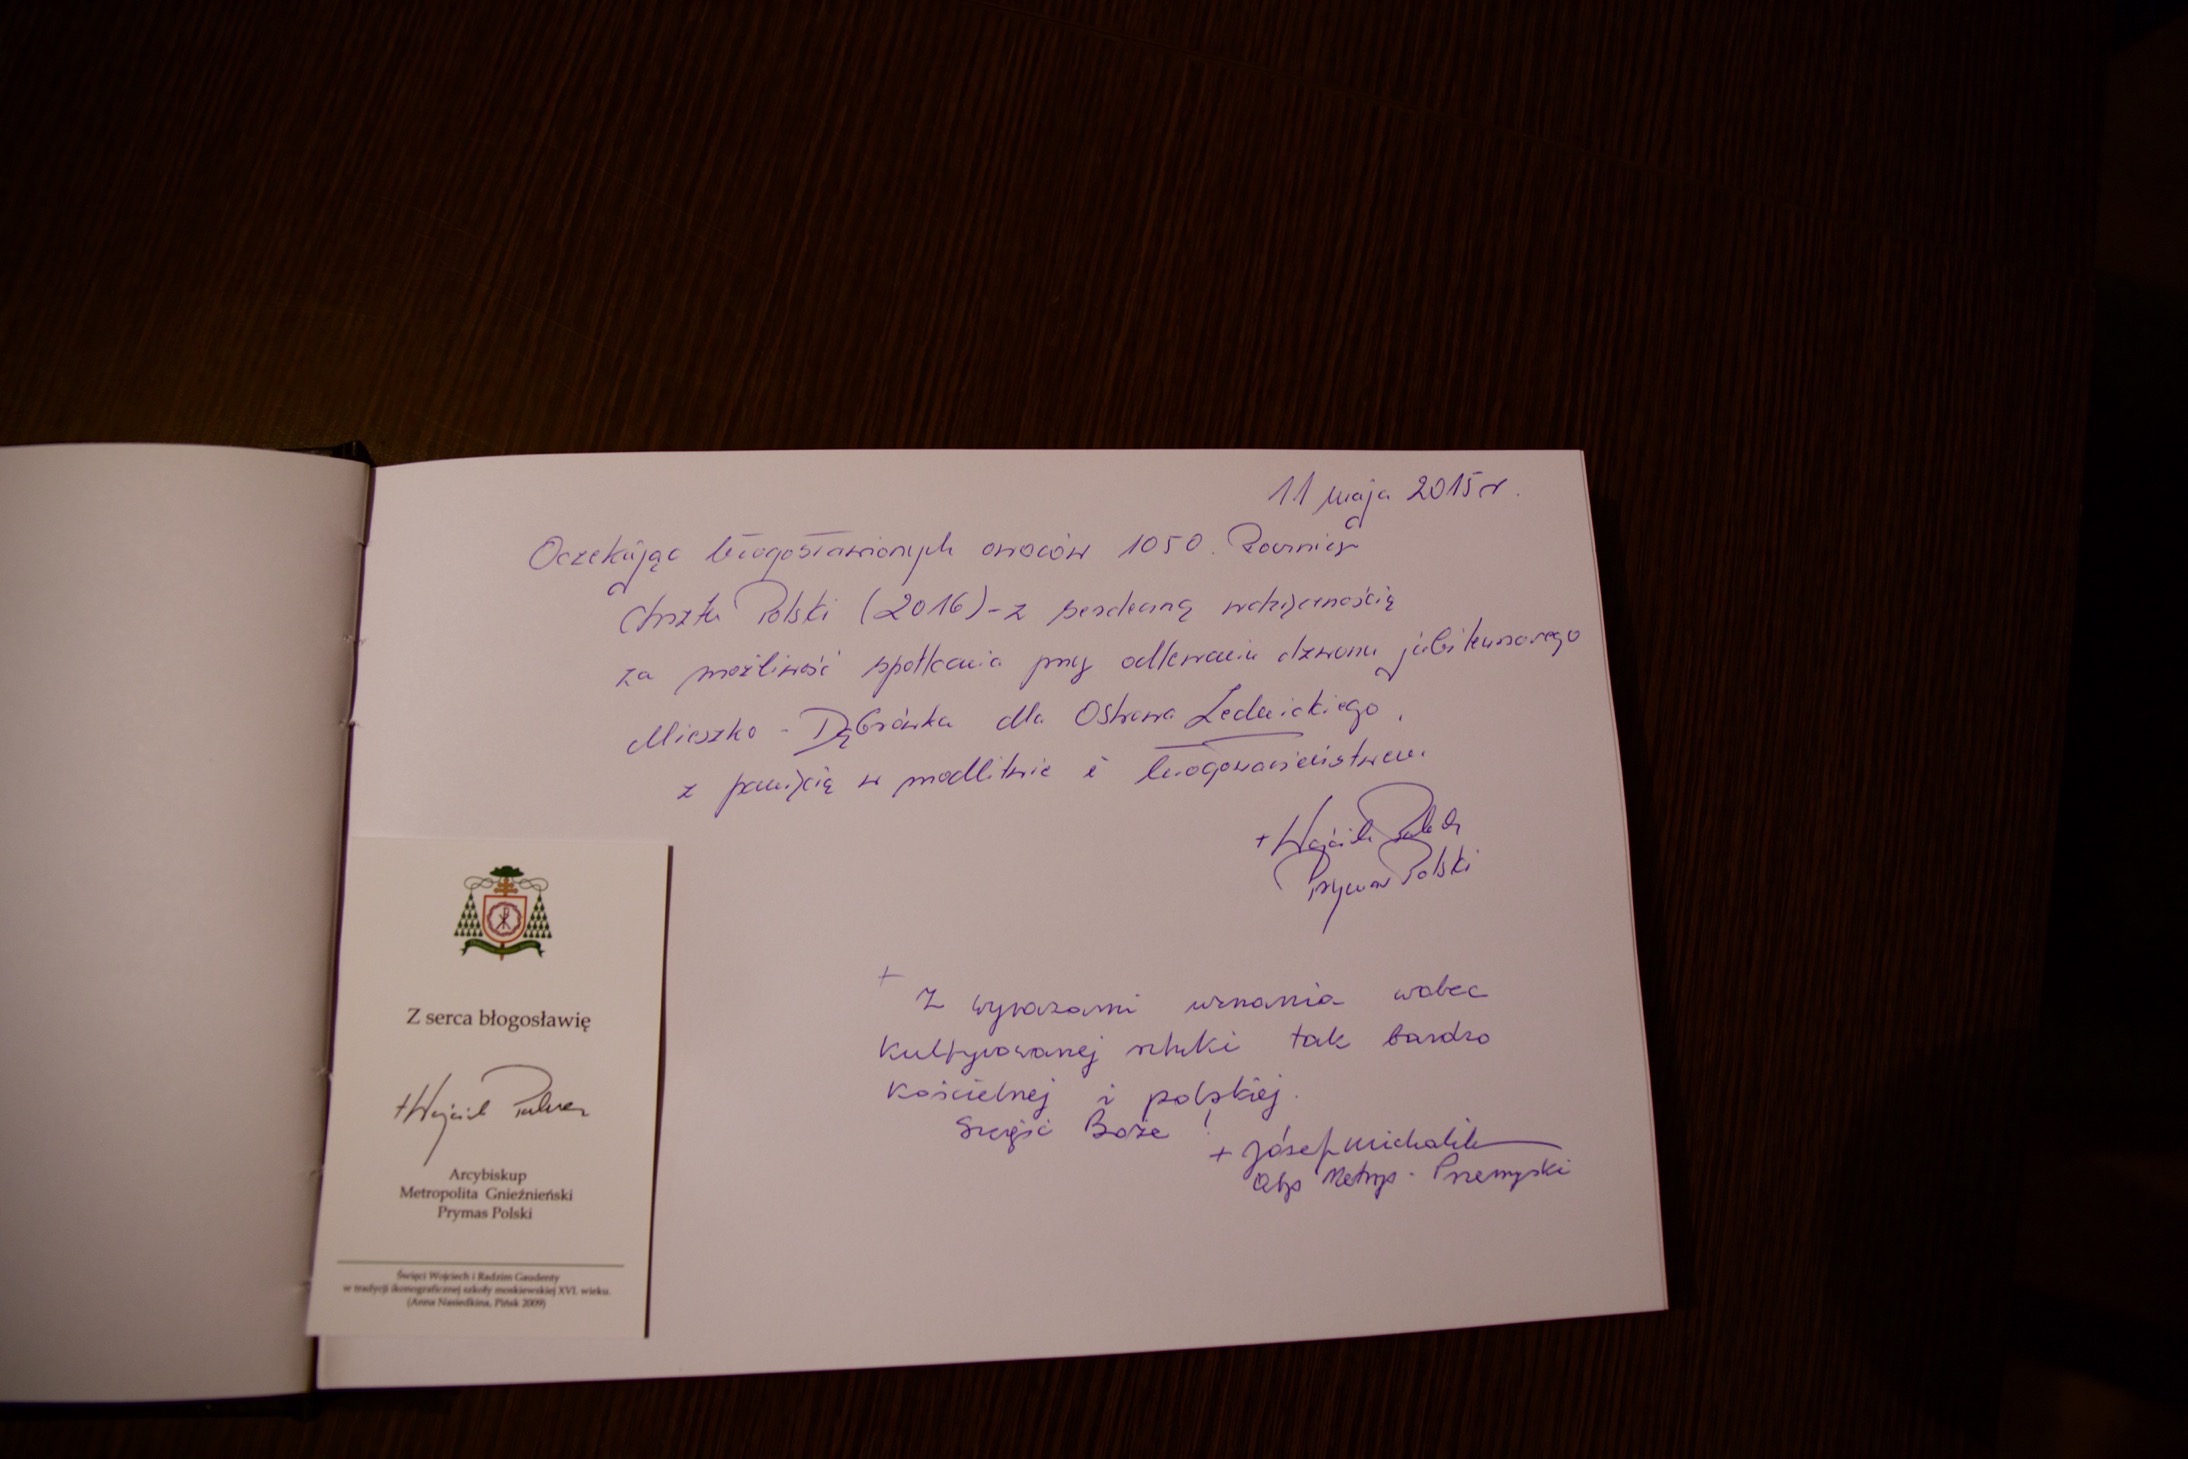 11 maja 2015 r.
Oczekując błogosławionych owoców 1050. Rocznicy
Chrztu Polski (2016) - z serdeczną wdzięcznością
za możliwość spotkania przy odlewaniu dzwonu jubileuszowego
Mieszko - Dąbrówka dla Ostrowa Lednickiego,
z pamięcią w modlitwie i błogosławieństwem.
+ Wojciech Polak
Prymas Polski
+
Z wyrazami uznania wobec
kultywowanej sztuki tak bardzo
kościelnej i polskiej.
Szczęść Boże!
+ Józef Michalik
Abp Metrop. Przemyski
Z serca błogosławię
+ Wojciech Polak
Arcybiskup
Metropolita Gnieźnieński
Prymas Polski
Święci Wojciech i Radzim Gaudenty
w tradycji ikonograficznej szkoły moskiewskiej XVI. wieku.
(Anna Nasiedkina, Pińsk 2009)